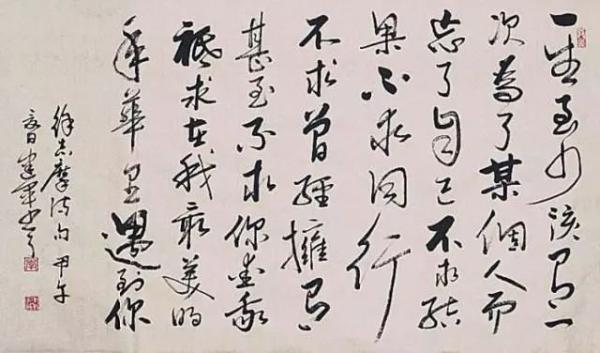 一生至少該有一
次為了某個人而
忘了自己不求结
果不求同行
不求曾經擁有
甚至不求你愛我
祗求在我最美的
年華里遇到你
徐志摩诗句 甲午